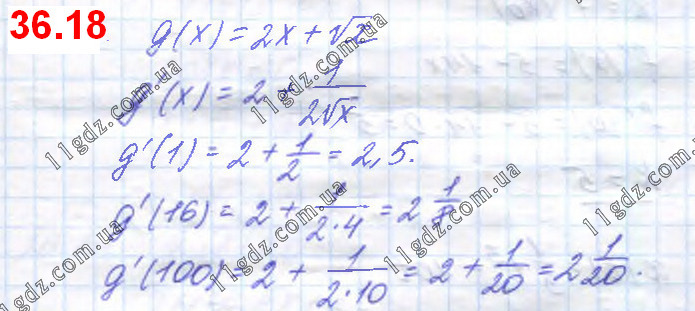 36.18
g(x) = 2x + √x
g'(x) = 2 + 1/(2√x)
g'(1) = 2 + 1/2 = 2,5.
g'(16) = 2 + 1/(2·4) = 2 1/8
g'(100) = 2 + 1/(2·10) = 2 + 1/20 = 2 1/20.
11gdz.com.ua
11gdz.com.ua
11gdz.com.ua
11gdz.com.ua
11gdz.com.ua
11gdz.com.ua